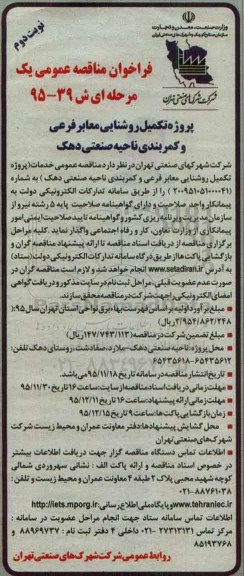 نوبت دوم
وزارت صنعت، معدن و تجارت
شرکت شهرکهای صنعتی تهران
فراخوان مناقصه عمومی یک
مرحله ای ش ۳۹-۹۵
پروژه تکمیل روشنایی معابر فرعی
و کمربندی ناحیه صنعتی دهک
شرکت شهرکهای صنعتی تهران در نظر دارد مناقصه عمومی خدمات (پروژه
تکمیل روشنایی معابر فرعی و کمربندی ناحیه صنعتی دهک) به شماره
(۲۰۰۹۵۱۰۵۱۰۰۰۰۴۱) را از طریق سامانه تدارکات الکترونیکی دولت به
پیمانکار واجد صلاحیت و دارای گواهینامه صلاحیت پایه ۵ رشته نیرو از
سازمان مدیریت و برنامه ریزی کشور و گواهینامه تایید صلاحیت ایمنی امور
پیمانکاری از وزارت تعاون، کار و رفاه اجتماعی واگذار نماید. کلیه مراحل
برگزاری مناقصه از دریافت اسناد مناقصه تا ارائه پیشنهاد مناقصه گران و
بازگشایی پاکت ها از طریق درگاه سامانه تدارکات الکترونیکی دولت (ستاد)
به آدرس www.setadiran.ir انجام خواهد شد و لازم است مناقصه گران در
صورت عدم عضویت قبلی، مراحل ثبت نام در سایت مذکور و دریافت گواهی
امضای الکترونیکی را جهت شرکت در مناقصه محقق سازند.
مبلغ برآورد اولیه بر اساس فهرست بها، برق نواحی استان تهران سال ۹۵: (
۲/۹۵۴/۸۶۲/۲۴۸ ریال)
مبلغ تضمین شرکت در مناقصه (۱۴۷/۷۴۳/۱۱۳ ریال)
محل پروژه: ناحیه صنعتی دهک-ملارد، صفادشت، روستای دهک تلفن:
۶۵۴۳۵۶۱۲-۶۵۴۳۵۶۱۸
تاریخ انتشار مناقصه در سامانه تاریخ ۹۵/۱۱/۱۸ می باشد.
مهلت زمانی دریافت اسناد مناقصه از سایت: ساعت ۱۶ تاریخ ۹۵/۱۱/۳۰
مهلت زمانی ارائه پیشنهاد: ساعت ۱۶ تاریخ ۹۵/۱۲/۱۱
زمان بازگشایی پاکت ها: ساعت ۹ تاریخ ۹۵/۱۲/۱۵
محل گشایش پیشنهادها: دفتر معاونت عمران و محیط زیست شرکت
شهرک های صنعتی تهران
اطلاعات تماس دستگاه مناقصه گزار جهت دریافت اطلاعات بیشتر
در خصوص اسناد مناقصه و ارائه پاکت الف: نشانی سهروردی شمالی
کوچه شهید محبی پلاک ۲ طبقه ۴ معاونت عمران و محیط زیست و تلفن:
۰۲۱-۸۸۷۶۱۰۳۸
www.tehraniec.ir و پایگاه ملی اطلاع رسانی: http://iets.mporg.ir
اطلاعات تماس سامانه ستاد جهت انجام مراحل عضویت در سامانه:
مرکز تماس ۲۷۳۱۳۱۳۱-۰۲۱ داخلی ۴ دفتر ثبت نام: ۸۸۹۶۹۷۳۷ و
۸۵۱۹۳۷۶۸
روابط عمومی شرکت شهرک های صنعتی تهران